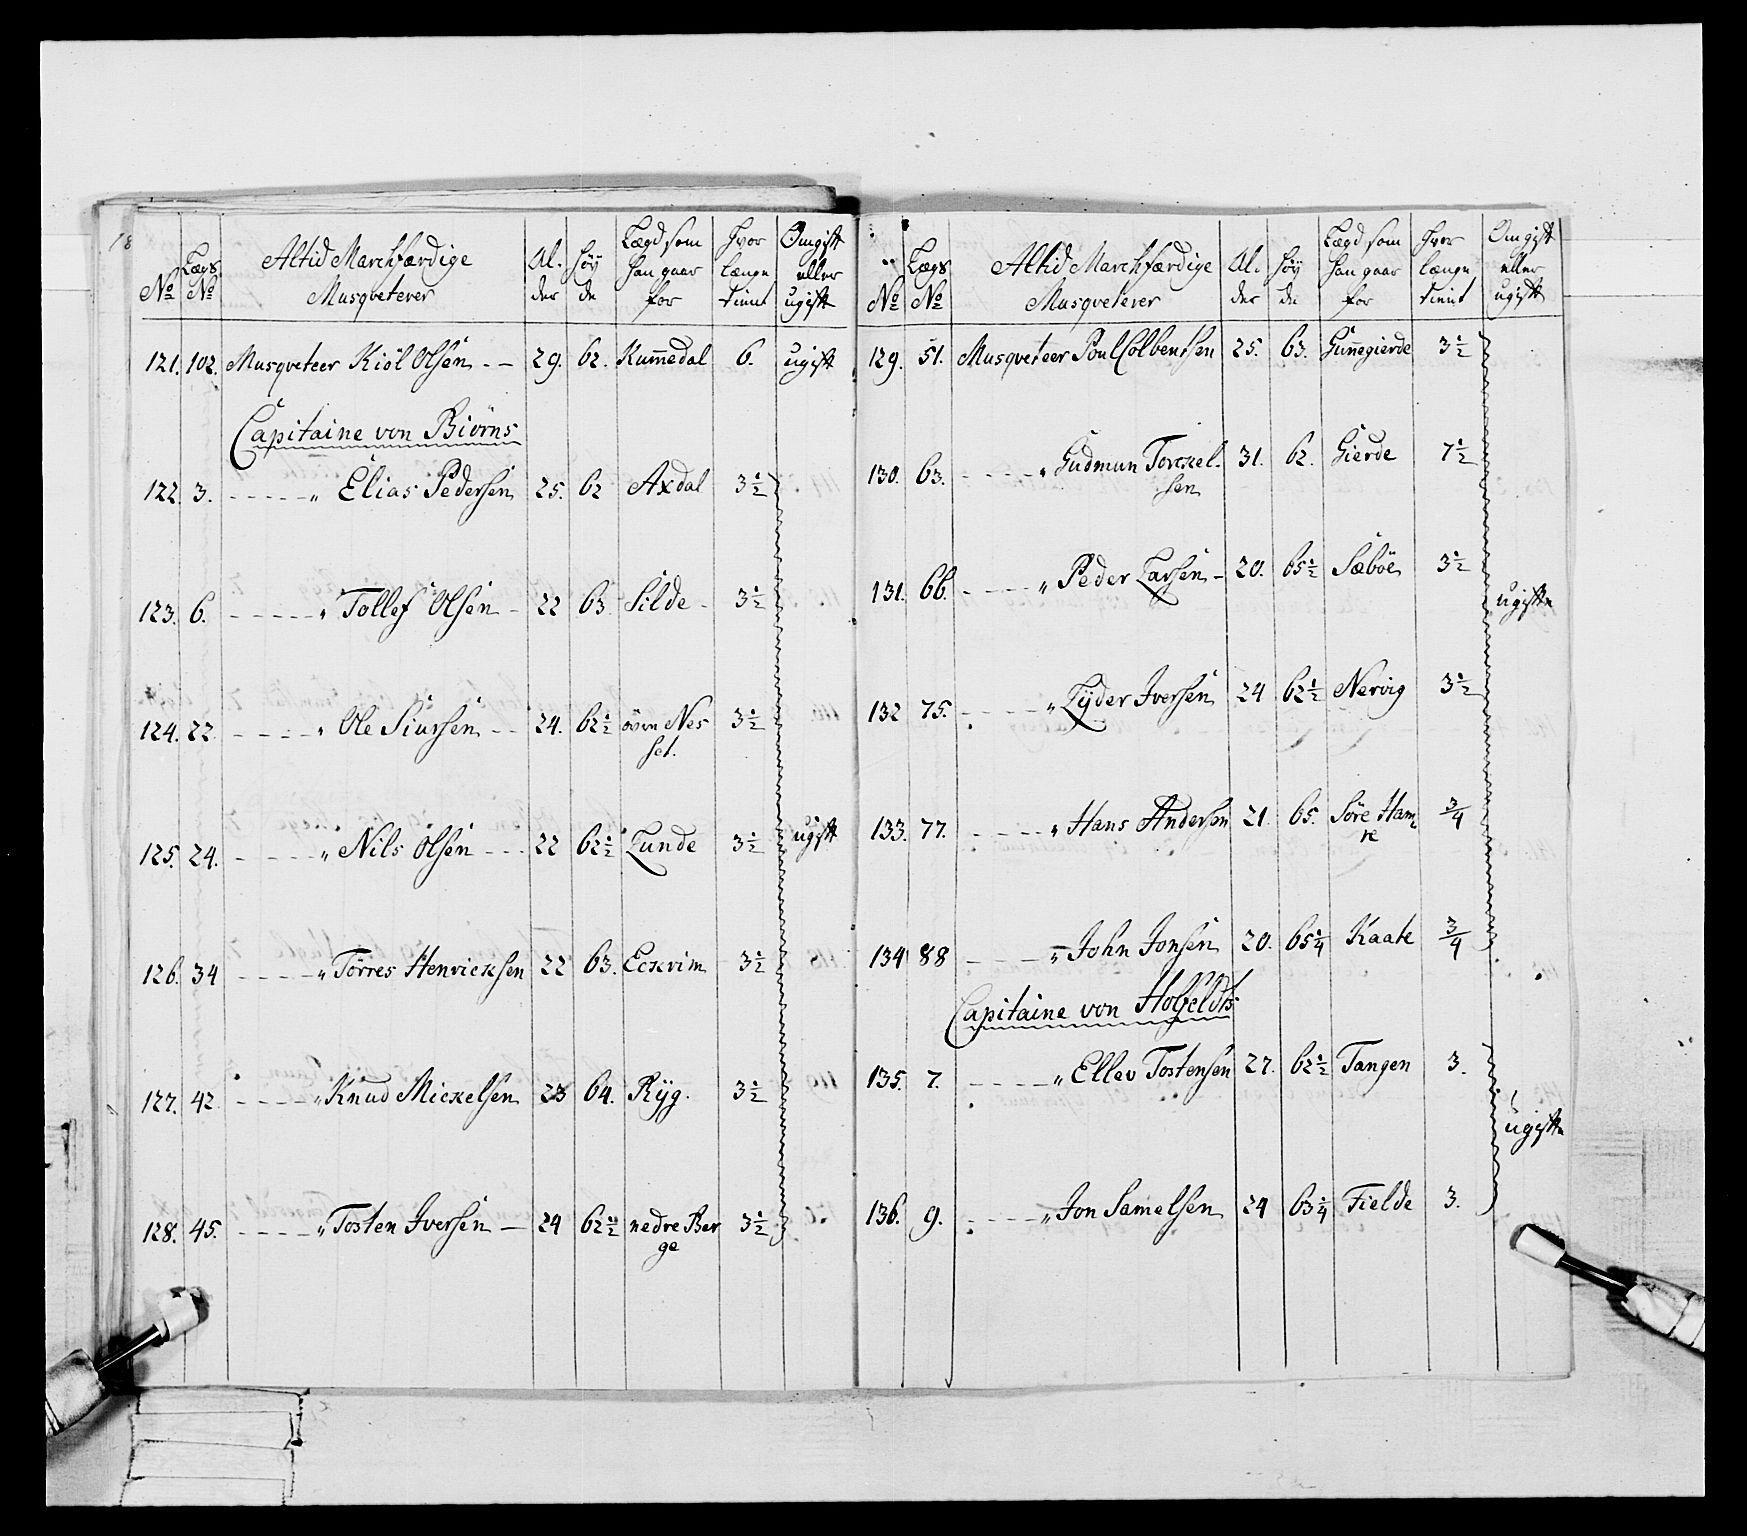 18
No | Lægs No | Altid Marchfærdige Musqveterer | Al- der | Høy de | Lægd som han gaar for | Hvor længe tient | Om gift eller ugift
121. 102. Musqveteer Kiöl Olsen -- 29. 62. Kummedal 6. ugift
Capitaine von Biörns
122. 3. ----- " Elias Pedersen 25. 62 Axdal 3 1/2
123. 6. ----- " Tollef Olsen - 22 63 Silde - 3 1/2
124. 22 ---- " Ole Siursen -- 24. 62 1/2 övre Nes
set.
3 1/2
125. 24. ---- " Nils Olsen --- 22 62 1/2 Lunde 3 1/2 ugift
126. 34 ---- " Torres Henricksen 22 63. Eckrim 3 1/2
127. 42 ---- " Knud Mickelsen 23 64. Ryg. 3 1/2
128. 45. ---- " Tosten Iversen - 24 62 1/2 nedre Ber
ge
3 1/2
No | Lægs No | Altid Marchfærdige Musqveterer | Al- der | Høy de | Lægd som han gaar for | Hvor længe tient | Om gift eller ugift
129. 51. Musqveteer Poul Colbensen 25. 63. Gunnegierde 3 1/2
130. 63. ---- " Gudmun Torckel-
sen
31. 62. Gierde 7 1/2
131. 66. ---- " Peder Larsen - 20. 65 1/2 Sæböe 3 1/2
ugifte
132 75. ---- " Lyder Iversen 24 62 1/2 Nervig 3 1/2
133. 77. ---- " Hans Andersen 21 65. Söre Ham
re
3/4
134 88 ---- " John Jonsen 20. 65 1/4 Kaate 3/4
Capitaine von Holfeldts
135. 7. ---- " Ellev Tostensen 27. 62 1/2 Tangen 3.
ugifte
136. 9. ---- " Jon Samelsen 24 63 1/4 Fielde 3.